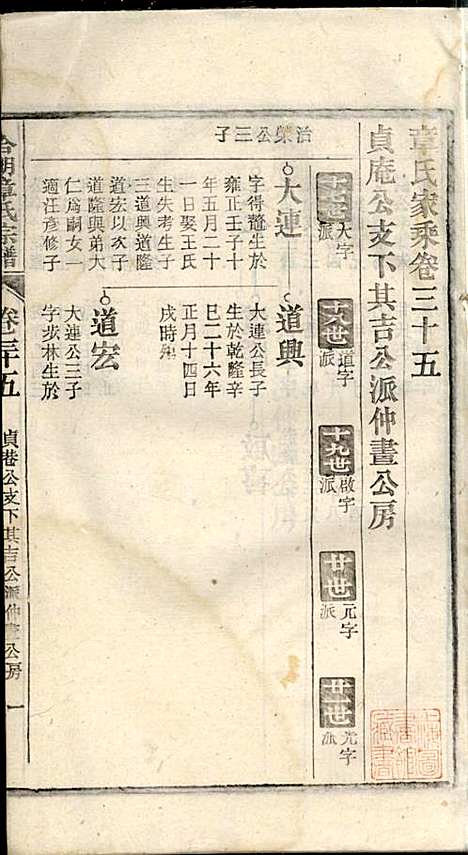 章氏家乘卷三十五
貞庵公支下其吉公派仲晝公房
十七世 大字派
十八世 道字派
十九世 啟字派
廿世 元字派
廿一世 光字派
治榮公三子
大連
字得鰲生於
雍正壬子十
年五月二十
一日娶王氏
生失考生子
三道興道隆
道宏以次子
道隆興弟大
仁爲嗣女一
適汪彦修子
道興
大連公長子
生於乾隆辛
巳二十六年
正月十四日
戌時
道宏
大連公三子
字步林生於
章氏宗譜
卷三十五
貞巷公支下其吉公派仲晝公房
一
圖書館藏書